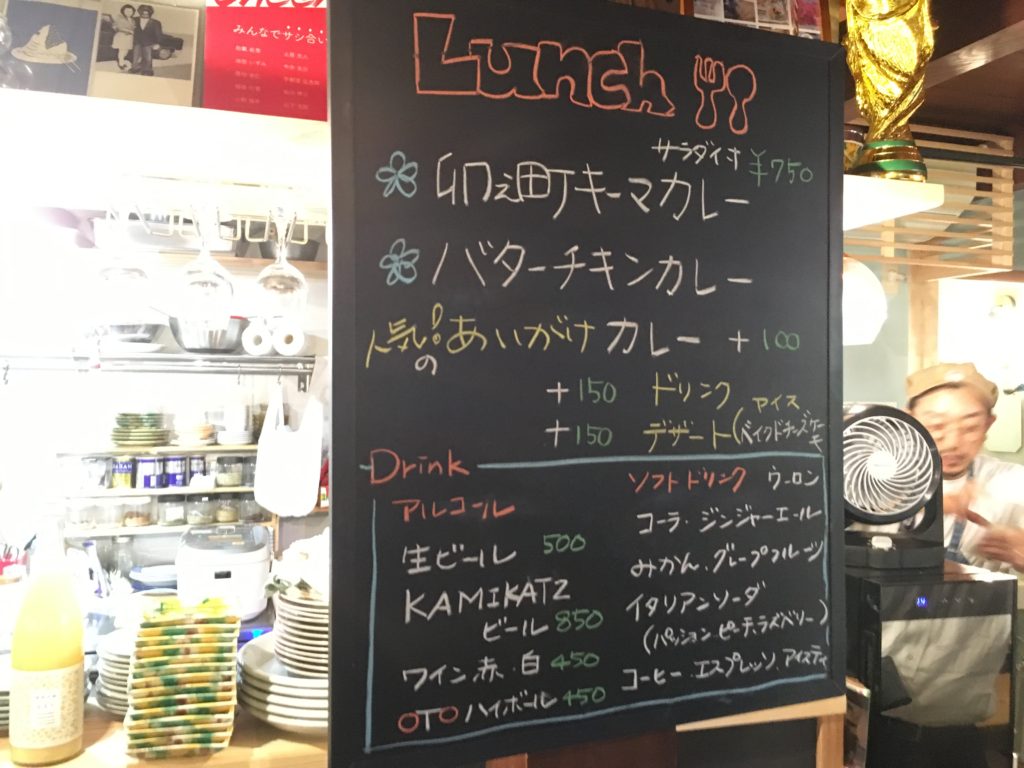 みんなでサシ合い
Lunch
サラダイ寸 ¥750
卯之町キーマカレー
バターチキンカレー
人気!の あいがけ カレー +100
+150 ドリンク
+150 デザート(アイス
ベイクドチーズケーキ
Drink
アルコール
生ビール 500
KAMIKATZ
ビール 850
ワイン赤.白 450
OTO ハイボール 450
ソフトドリンク ウーロン
コーラ.ジンジャーエール
みかん.グレープフルーツ
イタリアンソーダ
(パッション.ピーチ.ラズベリー)
コーヒー.エスプレッソ.アイスティ